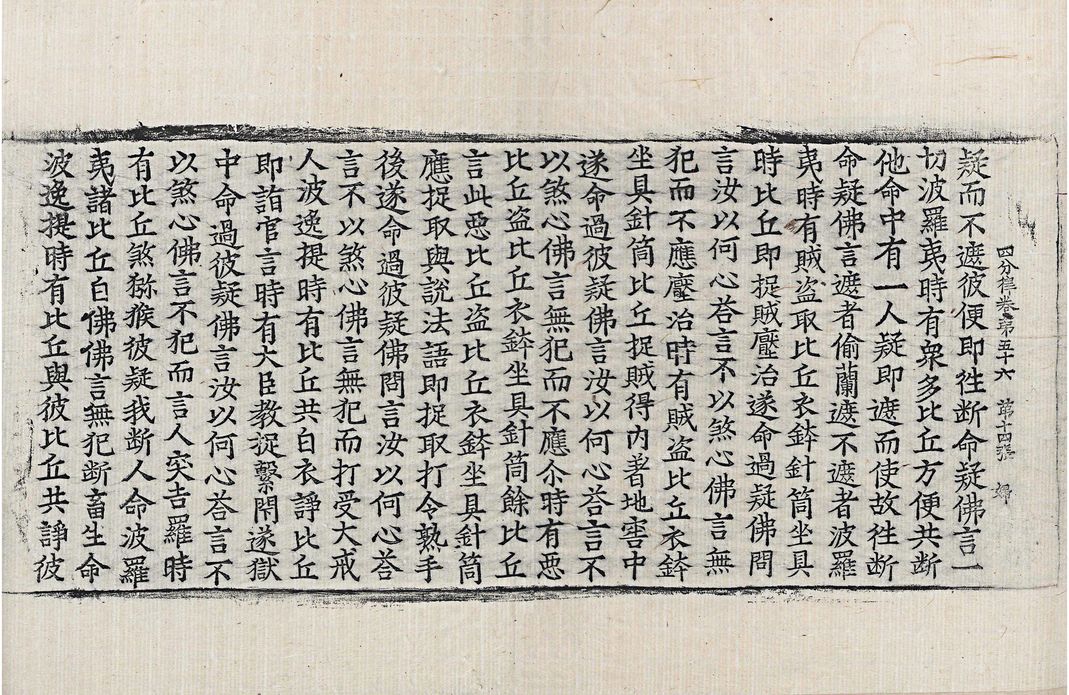 四分律卷第五十六 第十四張 婦
疑而不遮彼便即徃断命疑佛言一
切波羅夷時有衆多比丘方便共断
他命中有一人疑即遮而使故徃断
命疑佛言遮者偷蘭遮不遮者波羅
夷時有賊盗取比丘衣鉢針筒坐具
時比丘即捉賊壓治遂命過疑佛問
言汝以何心荅言不以煞心佛言無
犯而不應壓治時有賊盗比丘衣鉢
坐具針筒比丘捉賊得内著地窖中
遂命過彼疑佛言汝以何心荅言不
以煞心佛言無犯而不應尒時有惡
比丘盗比丘衣鉢坐具針筒餘比丘
言此惡比丘盗比丘衣鉢坐具針筒
應捉取與說法語即捉取打令熟手
後遂命過彼疑佛問言汝以何心荅
言不以煞心佛言無犯而打受大戒
人波逸提時有比丘共白衣諍比丘
即詣官言時有大臣教捉繫閇遂獄
中命過彼疑佛言汝以何心荅言不
以煞心佛言不犯而言人突吉羅時
有比丘煞猕猴彼疑我断人命波羅
夷諸比丘白佛佛言無犯断畜生命
波逸提時有比丘與彼比丘共諍彼